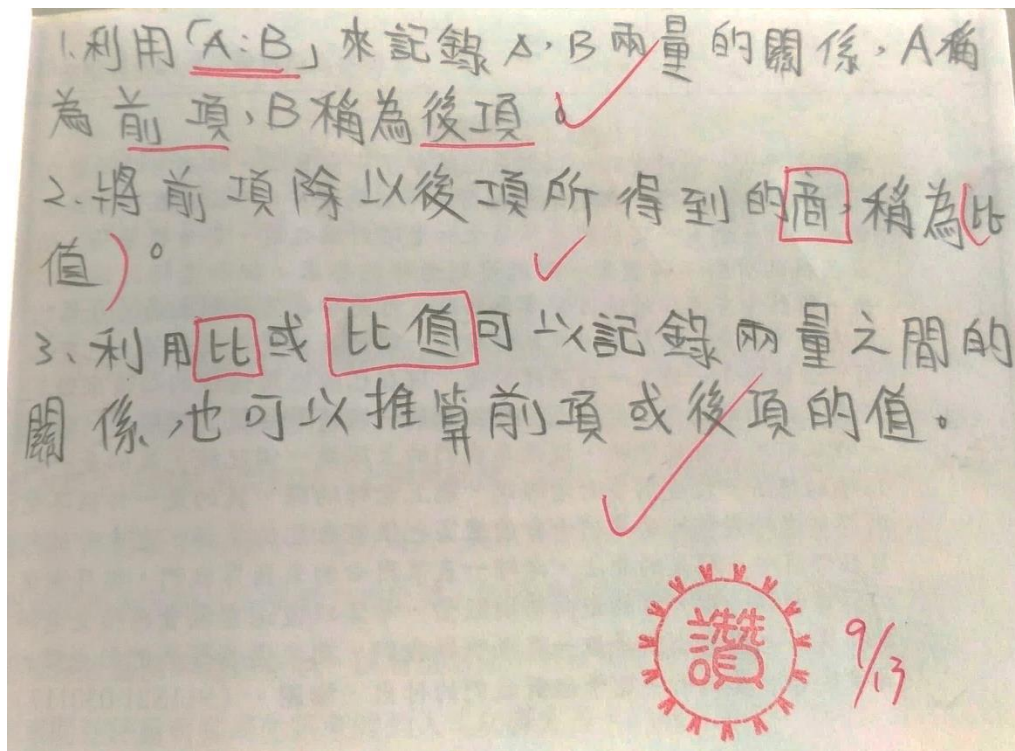 1.利用「A:B」來記錄A,B兩量的關係,A稱
為前項,B稱為後項。
2.將前項除以後項所得到的商,稱為(比
值)。
3、利用比或比值可以記錄兩量之間的
關係,也可以推算前項或後項的值。
讚
9/13